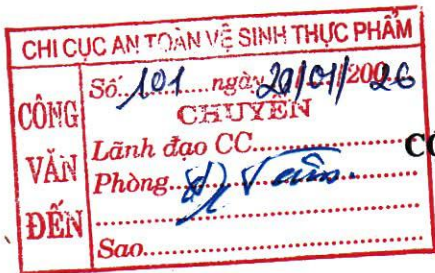 CHI CỤC AN TOÀN VỆ SINH THỰC PHẨM
CÔNG VĂN ĐẾN
Số 101 ngày /01/200 26
CHUYỂN
Lãnh đạo CC
CO
Phòng
Sao